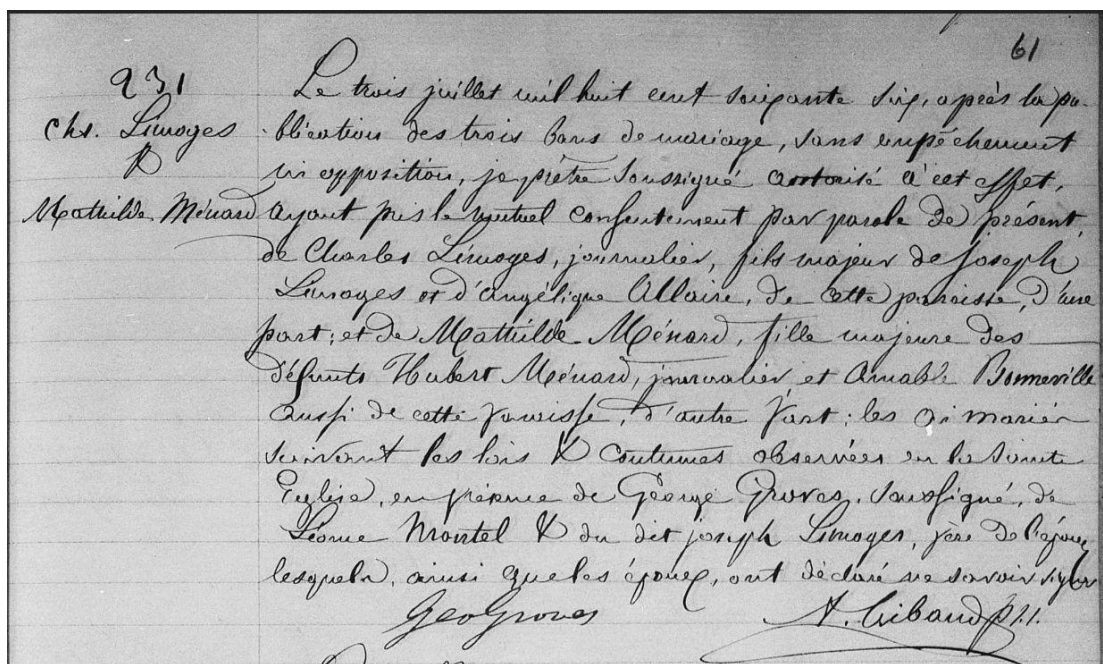 61
231
Chs. Limoges
&
Mathilde Ménard
Le trois juillet mil huit cent soixante six, après la pu-
blication des trois bans de mariage, sans empêchement
ni opposition, je prêtre soussigné autorisé à cet effet,
ayant pris le mutuel consentement par parole de présent,
de Charles Limoges, journalier, fils majeur de joseph
Limoges et d'angélique Allaire, de cette paroisse, d'une
part; et de Mathilde Ménard, fille majeure des
défunts Hubert Ménard, journalier, et Amable Bonneville
aussi de cette paroisse, d'autre part; les ai mariés
suivant les lois & coutumes observées en la sainte
Eglise, en présence de George Groves, soussigné, de
Martel & du dit joseph Limoges, père de l'époux,
lesquels, ainsi que les époux, ont déclaré ne savoir signer
Geo Groves
A. Gibaud p.s.s.